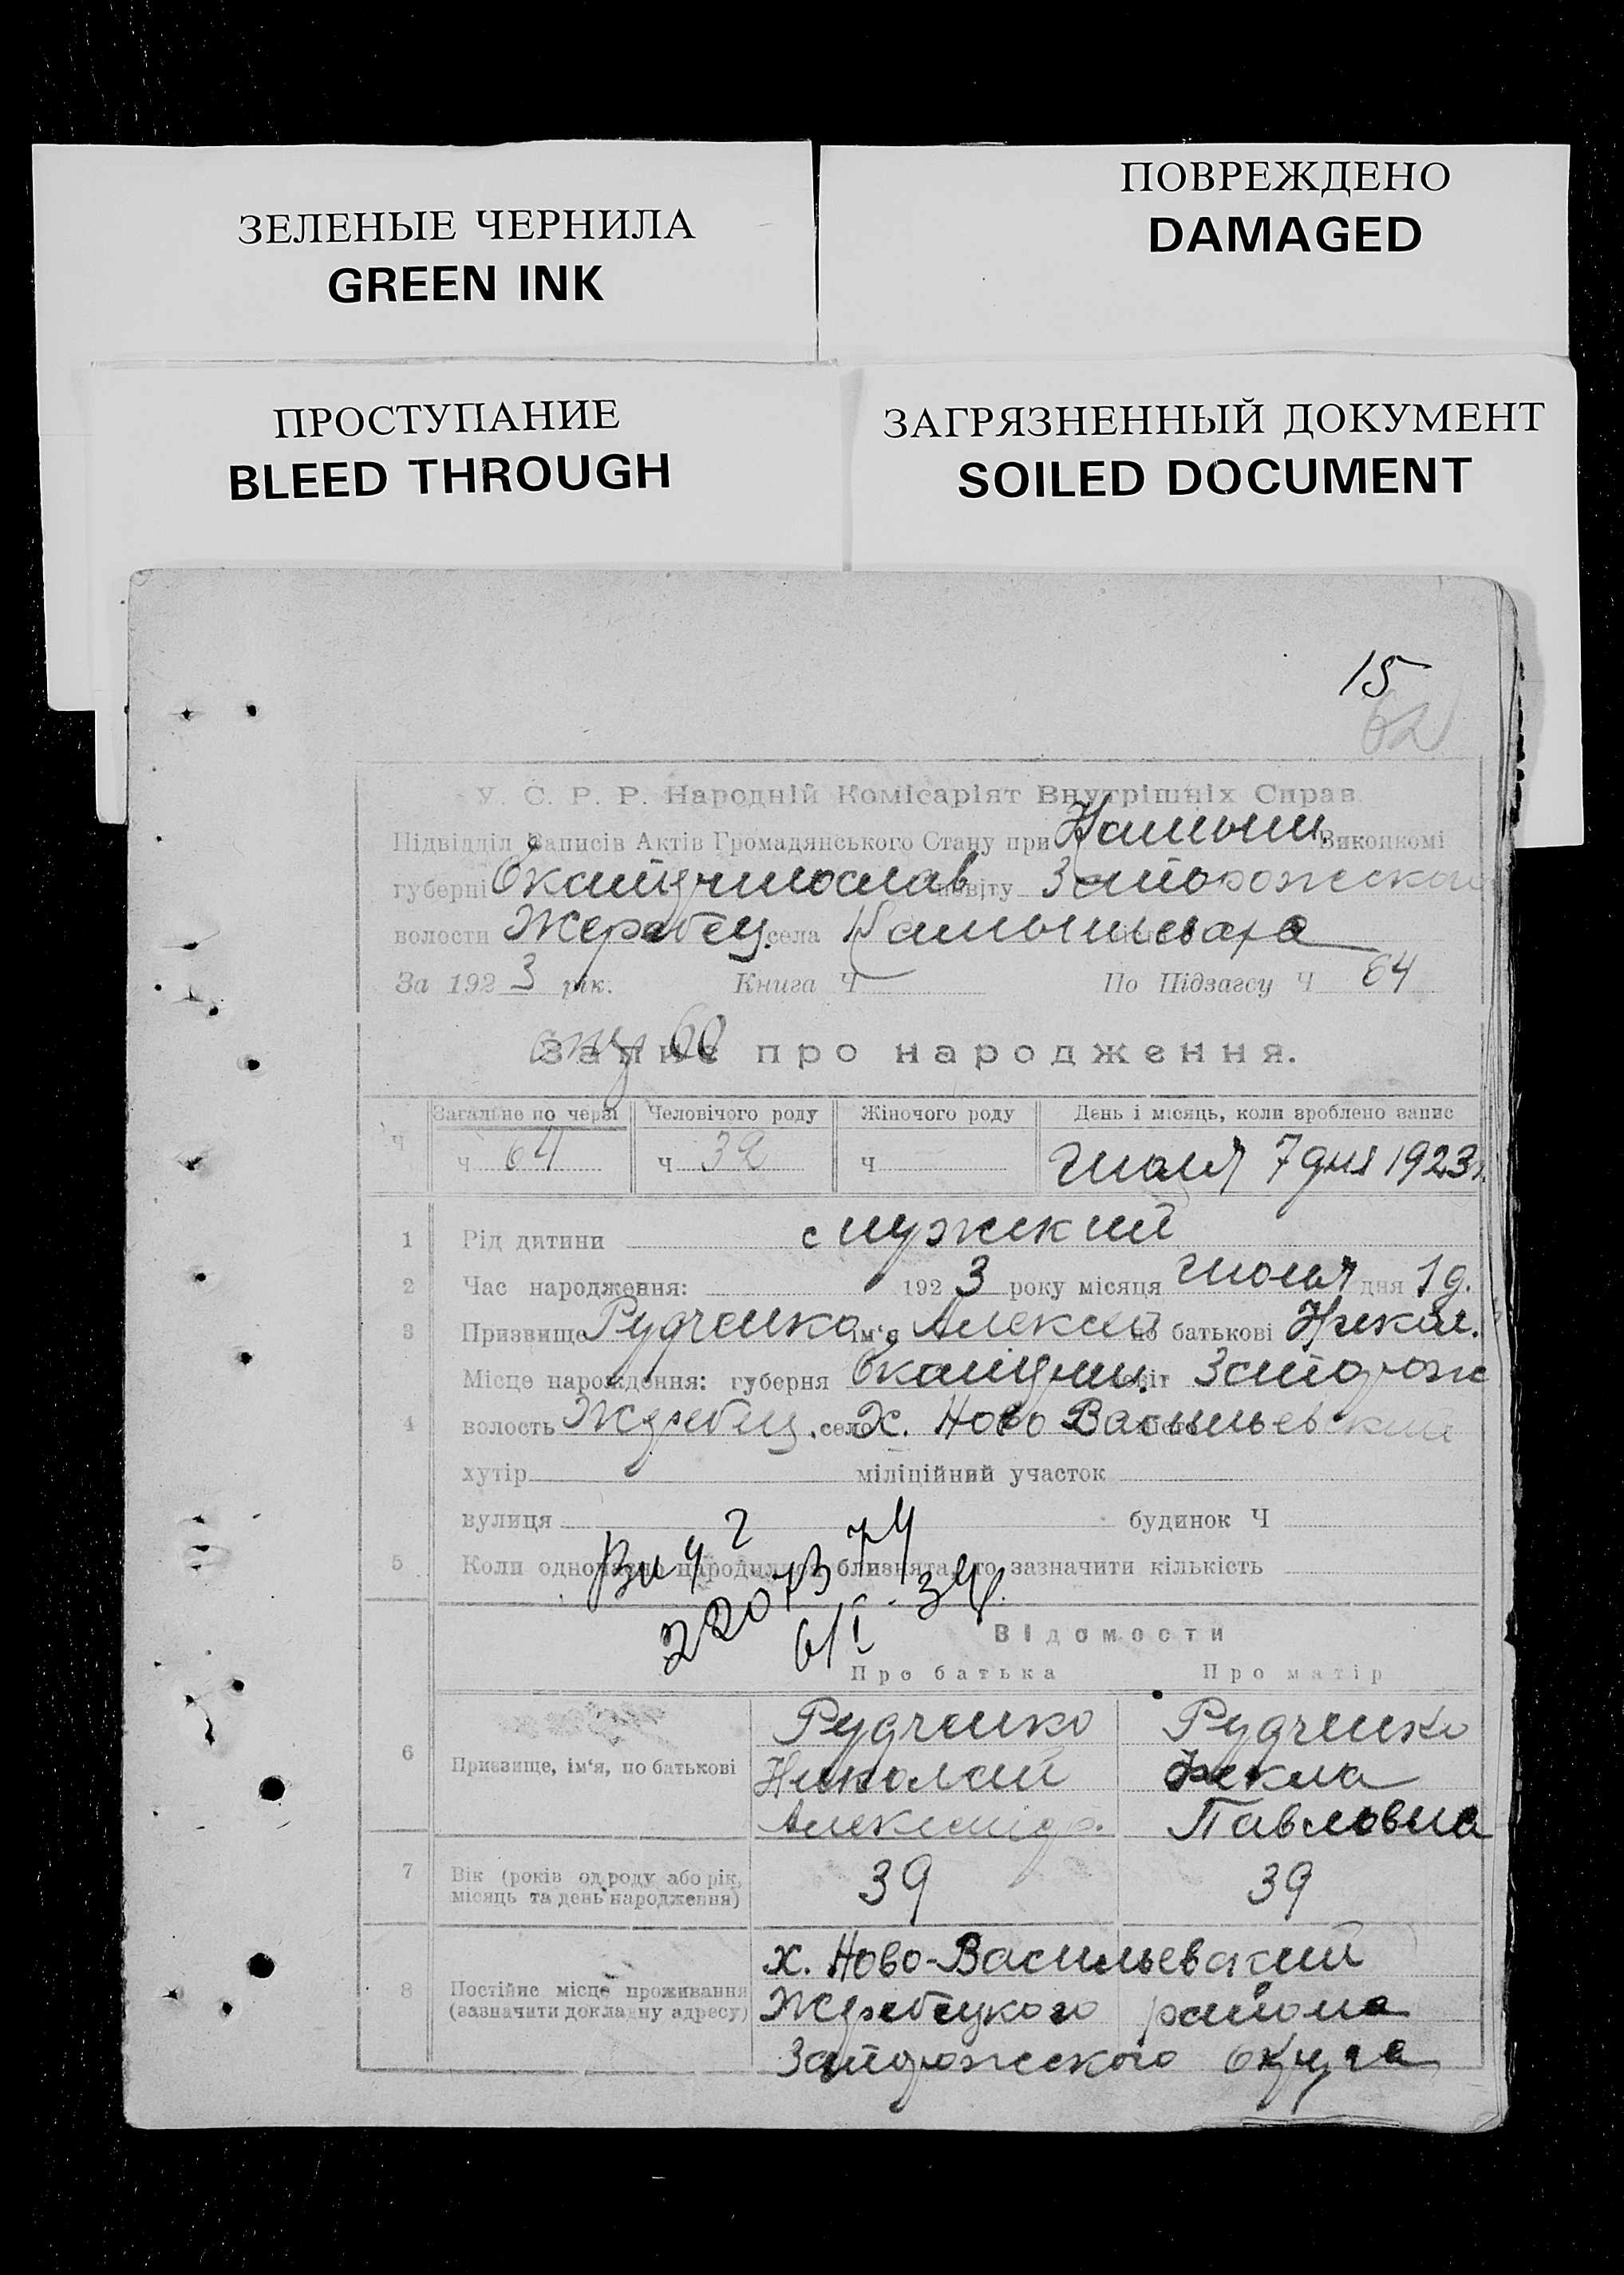 ЗЕЛЕНЫЕ ЧЕРНИЛА
GREEN INK
ПОВРЕЖДЕНО
DAMAGED
ПРОСТУПАНИЕ
BLEED THROUGH
ЗАГРЯЗНЕННЫЙ ДОКУМЕНТ
SOILED DOCUMENT
15
62
У. С. Р. Р. Народній Комісаріят Внутрішніх Справ
Підвідділ Записів Актів Громадянського Стану при Камыш. Виконкомі
губерні Екатеринослав повіту Запорожского
волости Жеребец. села Камышеваха
За 1923 рік. Книга Ч По Підзагсу Ч 64
Запис про народження.
Загальне по черзі Человічого роду Жіночого роду День і місяць, коли вроблено запис
ч ч 64 ч 32 ч Июля 7 дня 1923 г.
1 Рід дитини мужский
2 Час народження: 1923 року місяця Июля дня 1 д.
3 Призвище Рудченко ім'я Алексей по батькові Никол.
Місце нарождення: губерня Екатерин. повіт Запорож
4 волость Жеребец. село Х. Ново Васильевский
хутір міліційний участок
вулиця будинок Ч
5 Коли одночасно народилися близнята, то зазначити кількість
Відомости
Про батька Про матір
6 Призвище, ім'я, по батькові
Рудченко Рудченко
Николай Фекла
Александр. Павловна
7 Вік (років од роду або рік, місяць та день народження) 39 39
8 Постійне місце проживання (зазначити докладну адресу)
х. Ново-Васильевский
Жеребецкого района
Запорожского округа